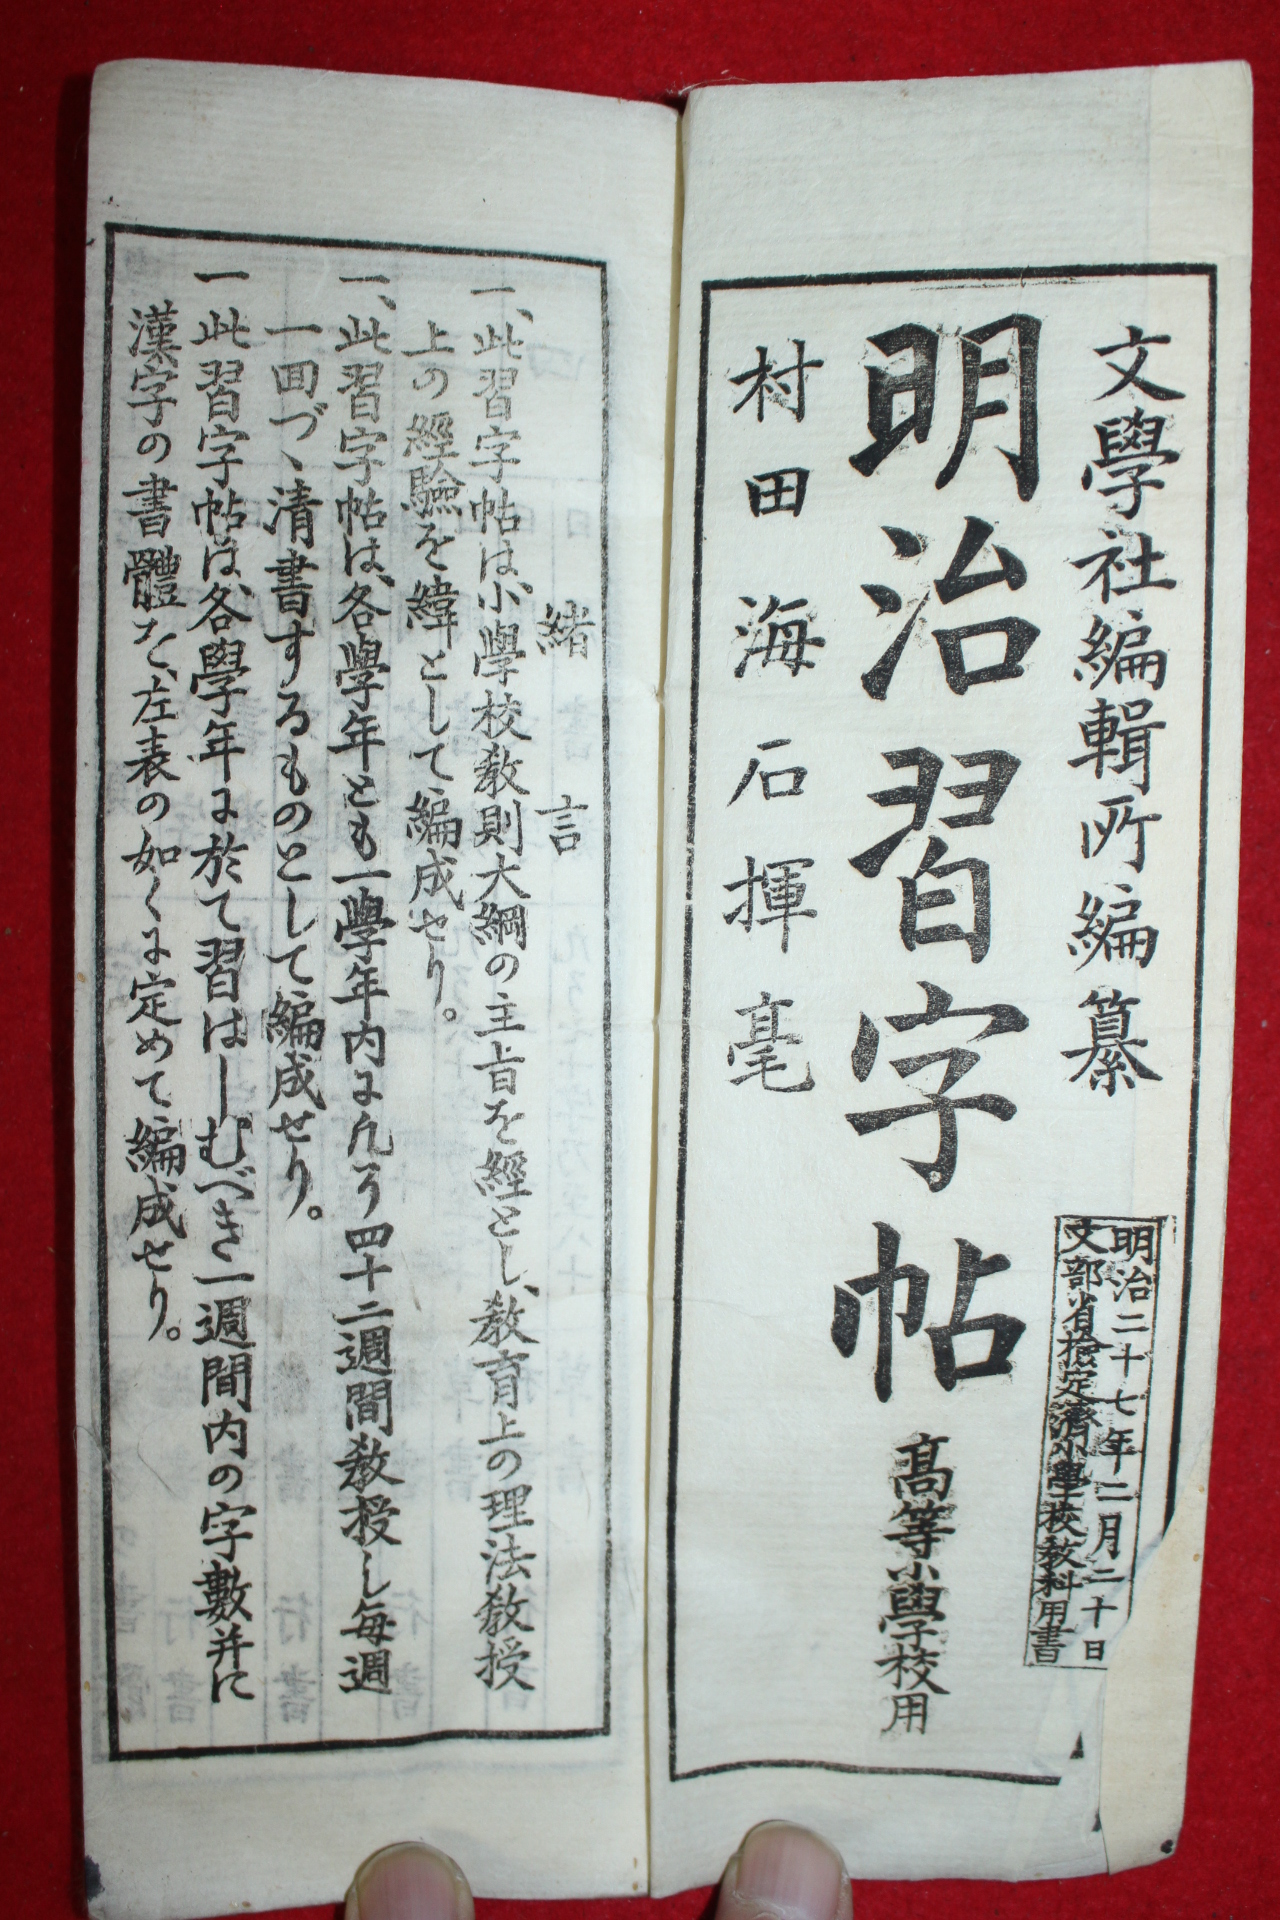 文學社編輯所編纂
明治二十七年二月二十日
文部省檢定濟小學校教科用書
明治習字帖
高等小學校用
村田海石揮毫
緒言
一、此習字帖は、小學校教則大綱の主旨を經とし、教育上の理法教授
上の經驗を緯として編成せり。
一、此習字帖は、各學年とも一學年内に凡そ四十二週間教授し毎週
一回づゝ清書するものとして編成せり。
一此習字帖は、各學年に於て習はしむべき一週間内の字數并に
漢字の書體を、左表の如くに定めて編成せり。